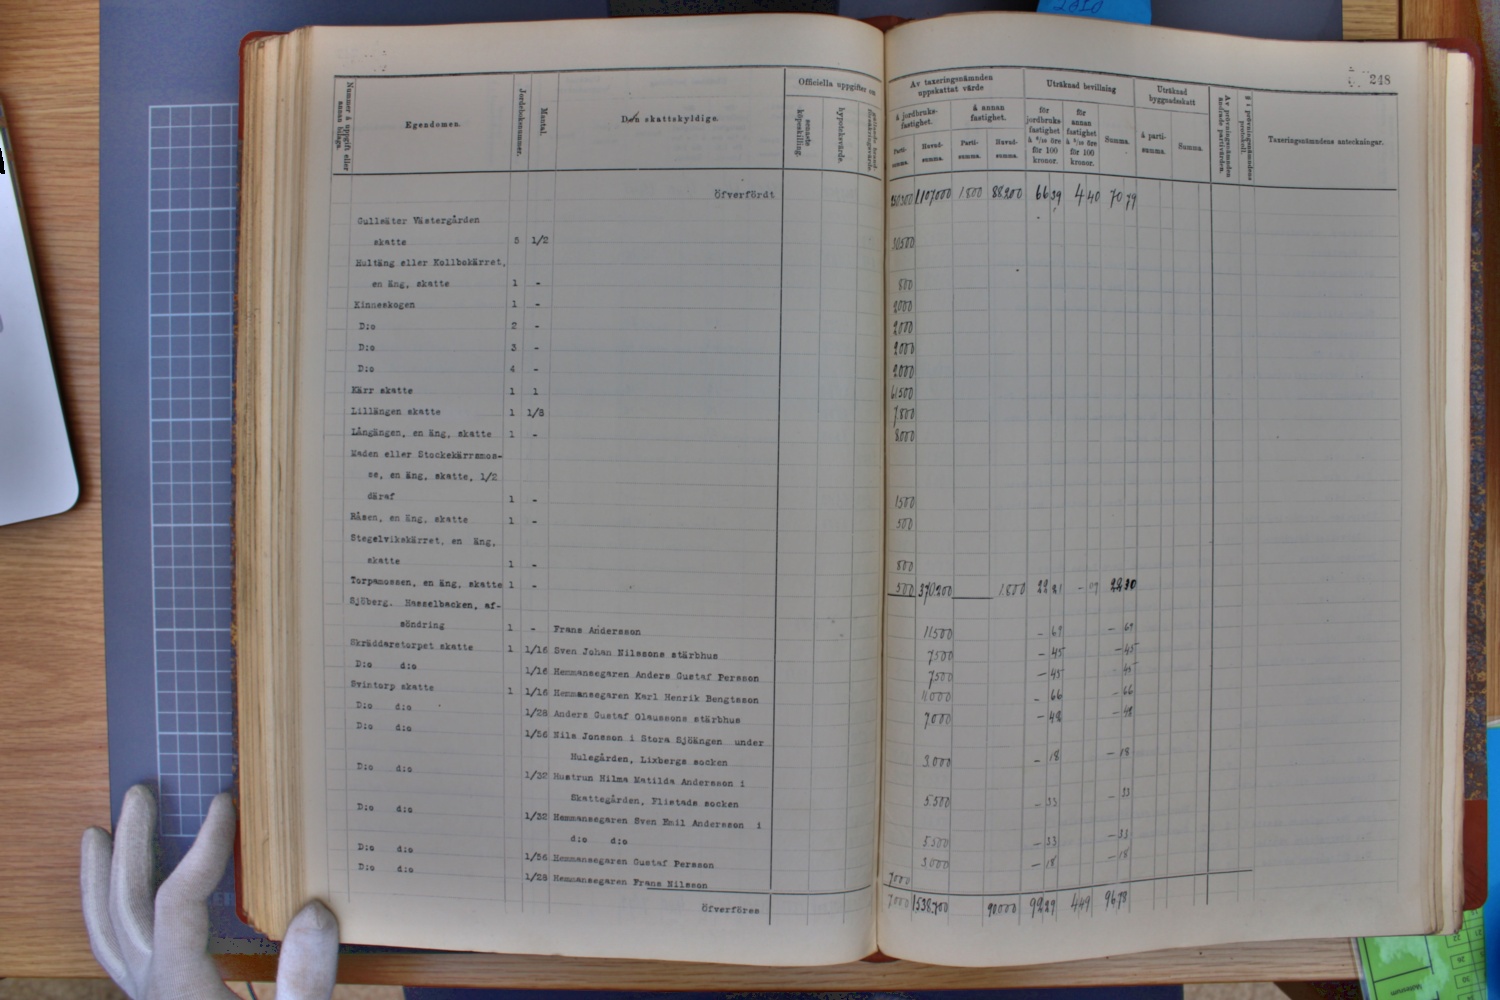 248
Nummer å uppgift eller annan bilaga.
Egendomen.
Jordeboksnummer.
Mantal.
Den skattskyldige.
Officiella uppgifter om
senaste köpeskilling.
hypoteksvärde.
Av taxeringsnämnden uppskattat värde
å jordbruksfastighet.
å annan fastighet.
Partisumma.
Huvudsumma.
Partisumma.
Huvudsumma.
Uträknad bevillning
för jordbruksfastighet à 6/10 öre för 100 kronor.
för annan fastighet à 5/10 öre för 100 kronor.
Summa.
Uträknad byggnadsskatt
à partisumma.
Summa.
Taxeringsnämndens anteckningar.
Öfverfördt 1107000 1800 88200 66 39 4 40 70 79
Gullsäter Västergården
skatte 5 1/2 30500
Hultäng eller Kollbokärret,
en äng, skatte 1 - 800
Kinneskogen 1 - 2000
D:o 2 - 2000
D:o 3 - 2000
D:o 4 - 2000
Kärr skatte 1 1 61500
Lillängen skatte 1 1/8 7800
Långängen, en äng, skatte 1 - 8000
Maden eller Stockekärrsmos-
se, en äng, skatte, 1/2
däraf 1 - 1500
Råsen, en äng, skatte 1 - 500
Stegelvikskärret, en äng,
skatte 1 - 800
Torpamossen, en äng, skatte 1 - 500 370200 1800 22 21 - 09 22 30
Sjöberg. Hasselbacken, af-
söndring 1 - Frans Andersson 11500 - 69 - 69
Skräddaretorpet skatte 1 1/16 Sven Johan Nilssons stärbhus 7500 - 45 - 45
D:o d:o 1/16 Hemmansegaren Anders Gustaf Persson 7500 - 45 - 45
Svintorp skatte 1 1/16 Hemmansegaren Karl Henrik Bengtsson 11000 - 66 - 66
D:o d:o 1/28 Anders Gustaf Olaussons stärbhus 7000 - 42 - 42
D:o d:o 1/56 Nils Jonsson i Stora Sjöängen under
Hulegården, Lixbergs socken 3000 - 18 - 18
D:o d:o 1/32 Hustrun Hilma Matilda Andersson i
Skattegården, Flistads socken 5500 - 33 - 33
D:o d:o 1/32 Hemmansegaren Sven Emil Andersson i
d:o d:o 5500 - 33 - 33
D:o d:o 1/56 Hemmansegaren Gustaf Persson 3000 - 18 - 18
D:o d:o 1/28 Hemmansegaren Frans Nilsson 7000
Öfverföres 7000 1538700 90000 92 29 4 49 96 78